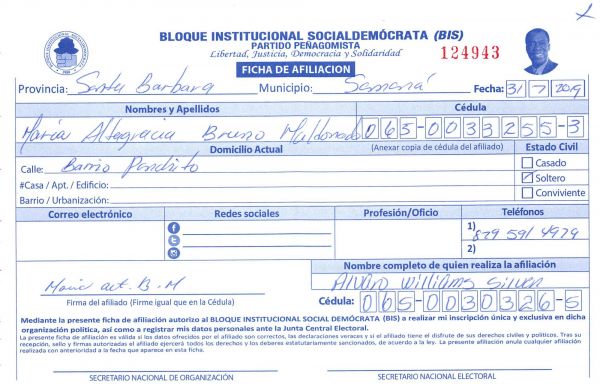 BLOQUE INSTITUCIONAL SOCIALDEMÓCRATA (BIS)
PARTIDO PEÑAGOMISTA
Libertad, Justicia, Democracia y Solidaridad
124943
FICHA DE AFILIACION
Provincia: Santa Barbara Municipio: Samaná Fecha: 31/7/2019
Nombres y Apellidos Cédula
María Altagracia Bruno Maldonado 065-0033255-3
Domicilio Actual (Anexar copia de cédula del afiliado) Estado Civil
Calle: Barrio Casado
#Casa / Apt. / Edificio: Soltero
Barrio / Urbanización: Conviviente
Correo electrónico Redes sociales Profesión/Oficio Teléfonos
1) 829 591 4979
2)
Nombre completo de quien realiza la afiliación
Alvaro Williams Silven
Firma del afiliado (Firme igual que en la Cédula) Cédula: 065-0030326-5
Mediante la presente ficha de afiliación autorizo al BLOQUE INSTITUCIONAL SOCIAL DEMÓCRATA (BIS) a realizar mi inscripción única y exclusiva en dicha
organización política, así como a registrar mis datos personales ante la Junta Central Electoral.
La presente ficha de afiliación es válida si los datos ofrecidos por el afiliado son correctos, las declaraciones veraces y si el afiliado tiene el disfrute de sus derechos civiles y políticos. Tras su
recepción, sello y firmas autorizadas el afiliado ejercerá todos los derechos y los deberes estatutariamente sancionados, de acuerdo a la ley. La presente afiliación anula cualquier afiliación
realizada con anterioridad a la fecha que aparece en esta ficha.
SECRETARIO NACIONAL DE ORGANIZACIÓN SECRETARIO NACIONAL ELECTORAL